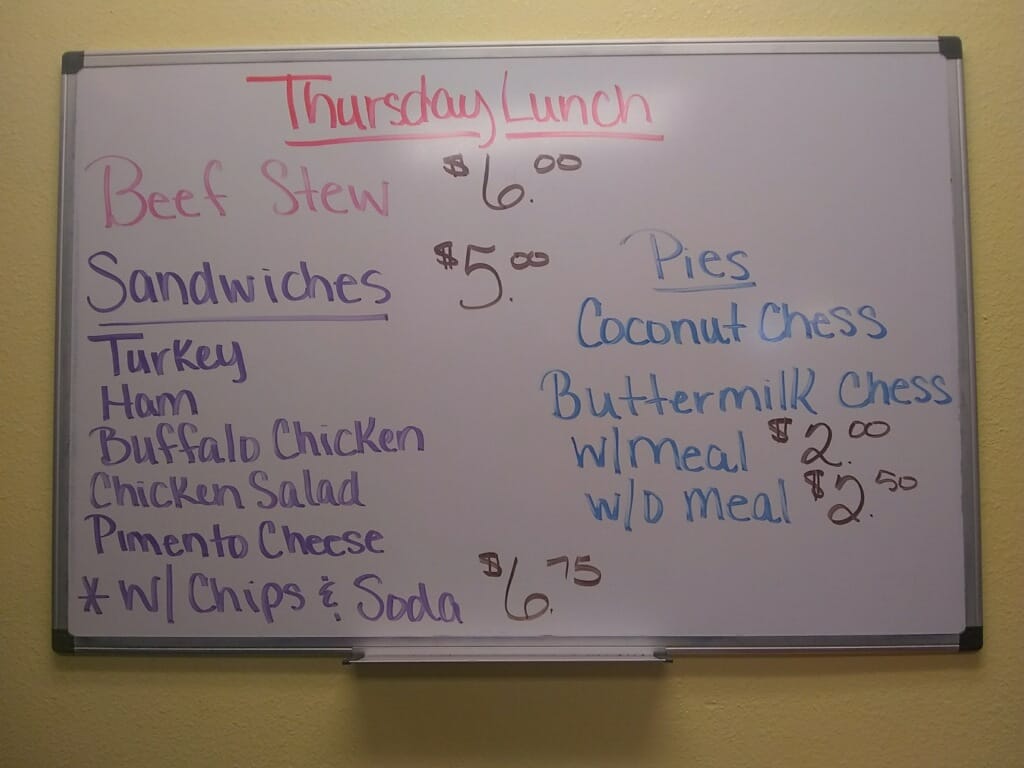 Thursday Lunch
Beef Stew $6.00
Sandwiches $5.00
Turkey
Ham
Buffalo Chicken
Chicken Salad
Pimento Cheese
* w/ Chips & Soda $6.75
Pies
Coconut Chess
Buttermilk Chess
w/meal $2.00
w/o meal $2.50